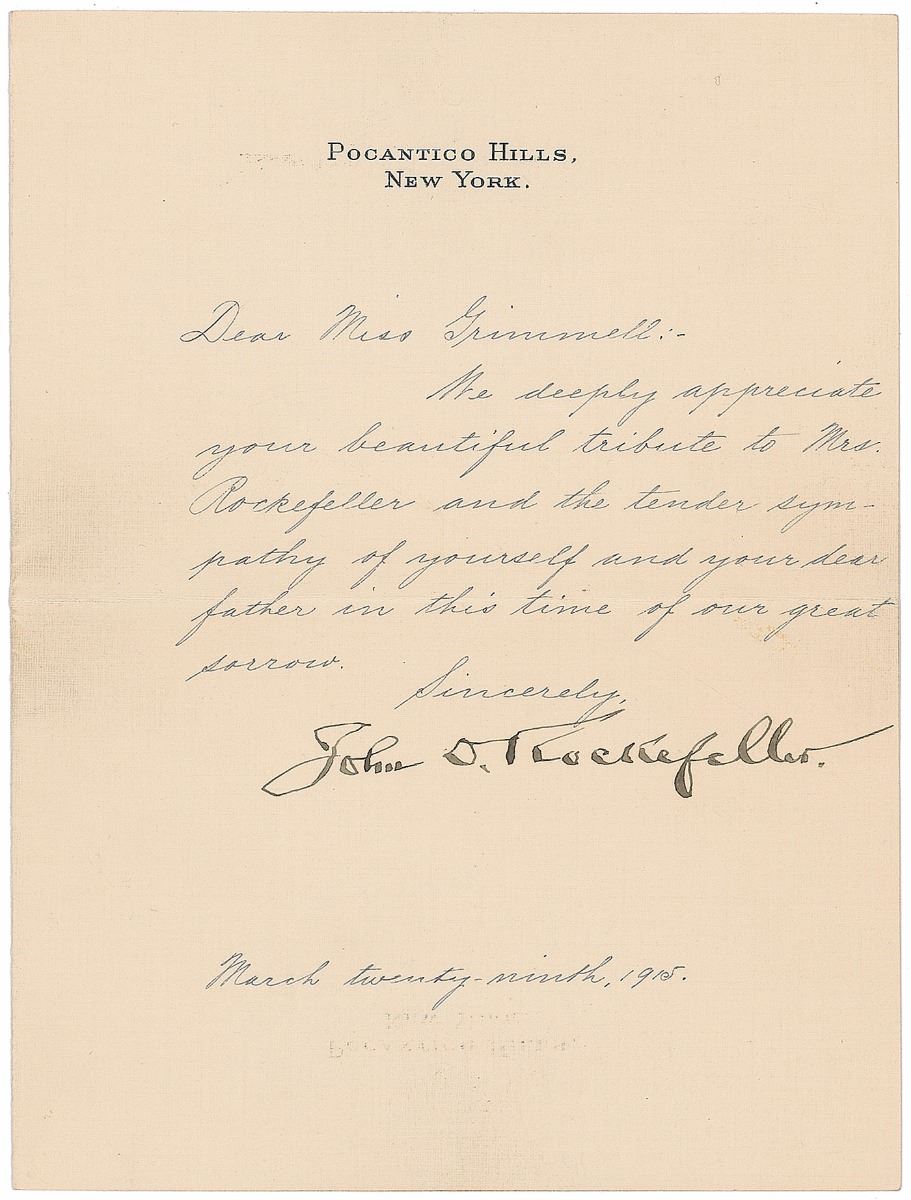 Pocantico Hills,
New York.
Dear Miss Grimmell:-
We deeply appreciate
your beautiful tribute to Mrs.
Rockefeller and the tender sym-
pathy of yourself and your dear
father in this time of our great
sorrow.
Sincerely,
John D. Rockefeller.
March twenty-ninth, 1915.